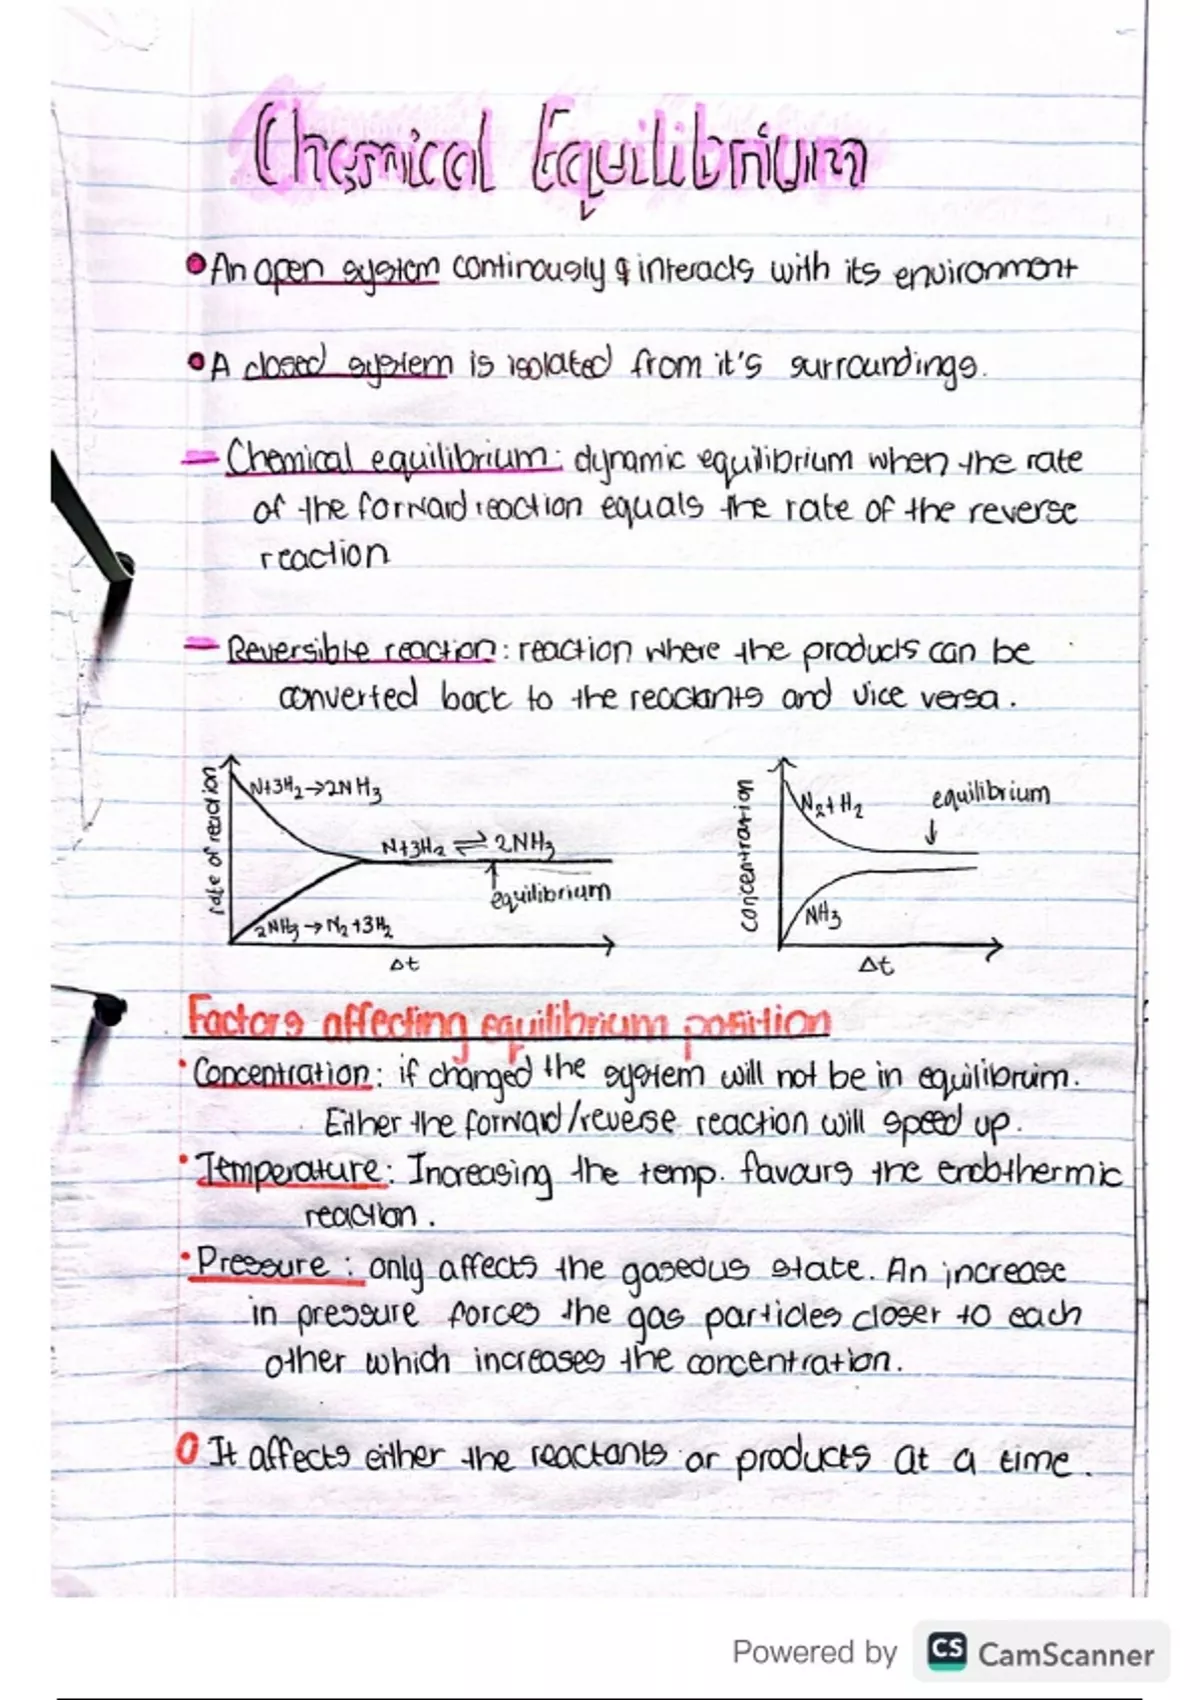 Chemical Equilibrium
An open system continously & interacts with its environment
A closed system is isolated from it's surroundings.
Chemical equilibrium: dynamic equilibrium when the rate
of the forward reaction equals the rate of the reverse
reaction
Reversible reaction: reaction where the products can be
converted back to the reactants and vice versa.
rate of reaction
N+3H₂→2NH₃
N+3H₂⇌2NH₃
equilibrium
2NH₃→N₂+3H₂
Δt
concentration
N₂+H₂
equilibrium
NH₃
Δt
Factors affecting equilibrium position
Concentration: if changed the system will not be in equilibruim.
Either the forward/reverse reaction will speed up.
Temperature: Increasing the temp. favours the endothermic
reaction.
Pressure: only affects the gaseous state. An increase
in pressure forces the gas particles closer to each
other which increases the concentration.
It affects either the reactants or products at a time.
Powered by CS CamScanner